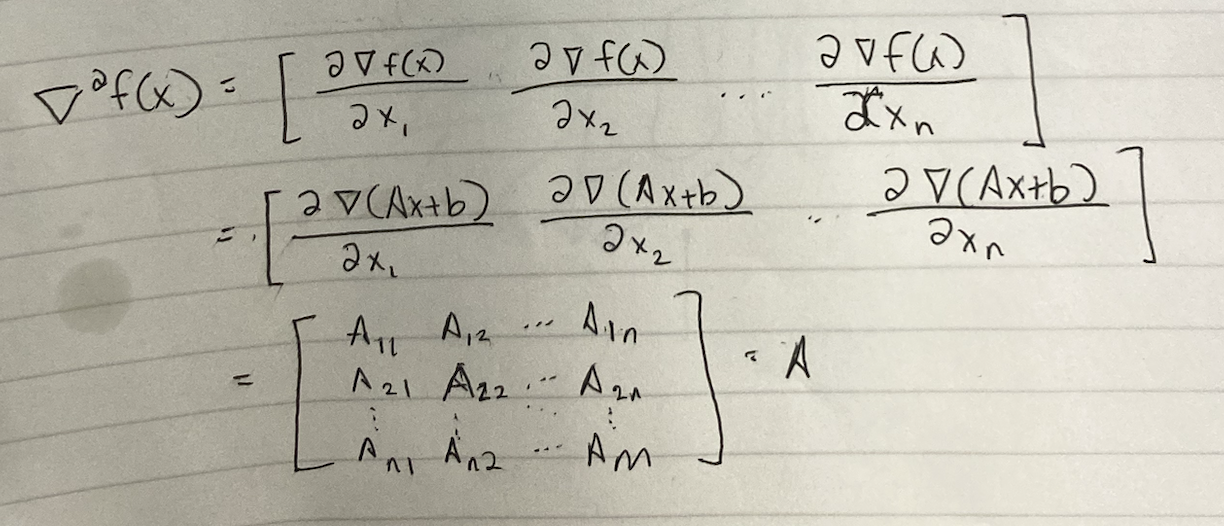 ∇²f(x) = [ ∂∇f(x)/∂x₁ ∂∇f(x)/∂x₂ ... ∂∇f(x)/∂xₙ ]
= [ ∂∇(Ax+b)/∂x₁ ∂∇(Ax+b)/∂x₂ ... ∂∇(Ax+b)/∂xₙ ]
= [ A₁₁ A₁₂ ... A₁ₙ
A₂₁ A₂₂ ... A₂ₙ
⋮ ⋮ ⋱ ⋮
Aₙ₁ Aₙ₂ ... Aₙₙ ] = A